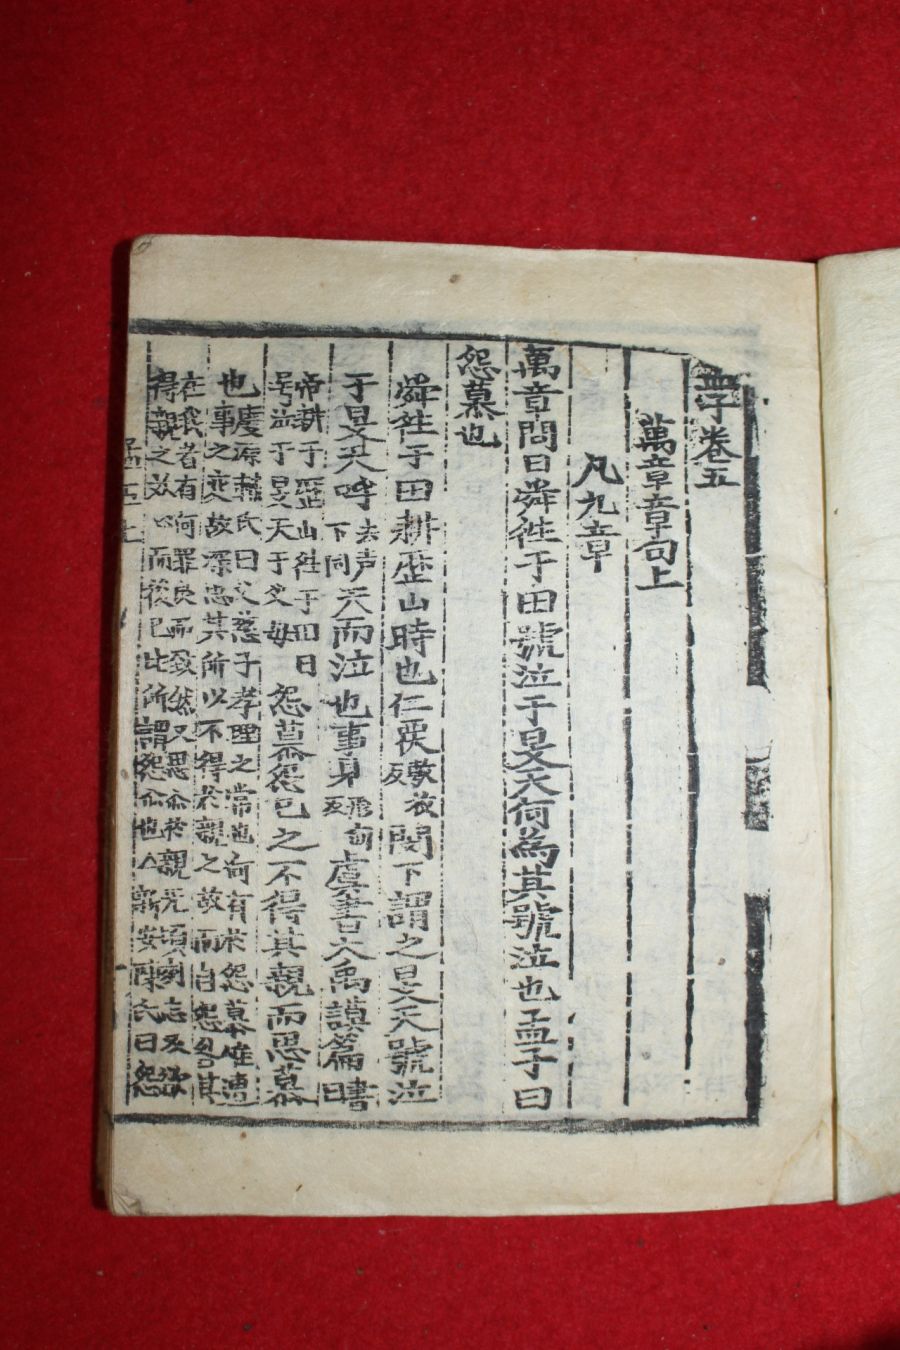 孟子卷五
萬章章句上
凡九章
萬章問曰舜往于田號泣于旻天何為其號泣也孟子曰
怨慕也
舜往于田耕歷山時也仁覆
閔下謂之旻天號泣
于旻天呼
去声
下同
天而泣也事見
虞書大禹謨篇
帝耕于歷山往于田日
号泣于旻天于父母
怨慕怨己之不得其親而思慕
也
慶源輔氏曰父慈子孝理之常也
事之變故深思其所以不得於親之故而自怨咎其
在我者有何罪戾而致然又思
得親之
而後已此所謂怨
新安陳氏曰怨